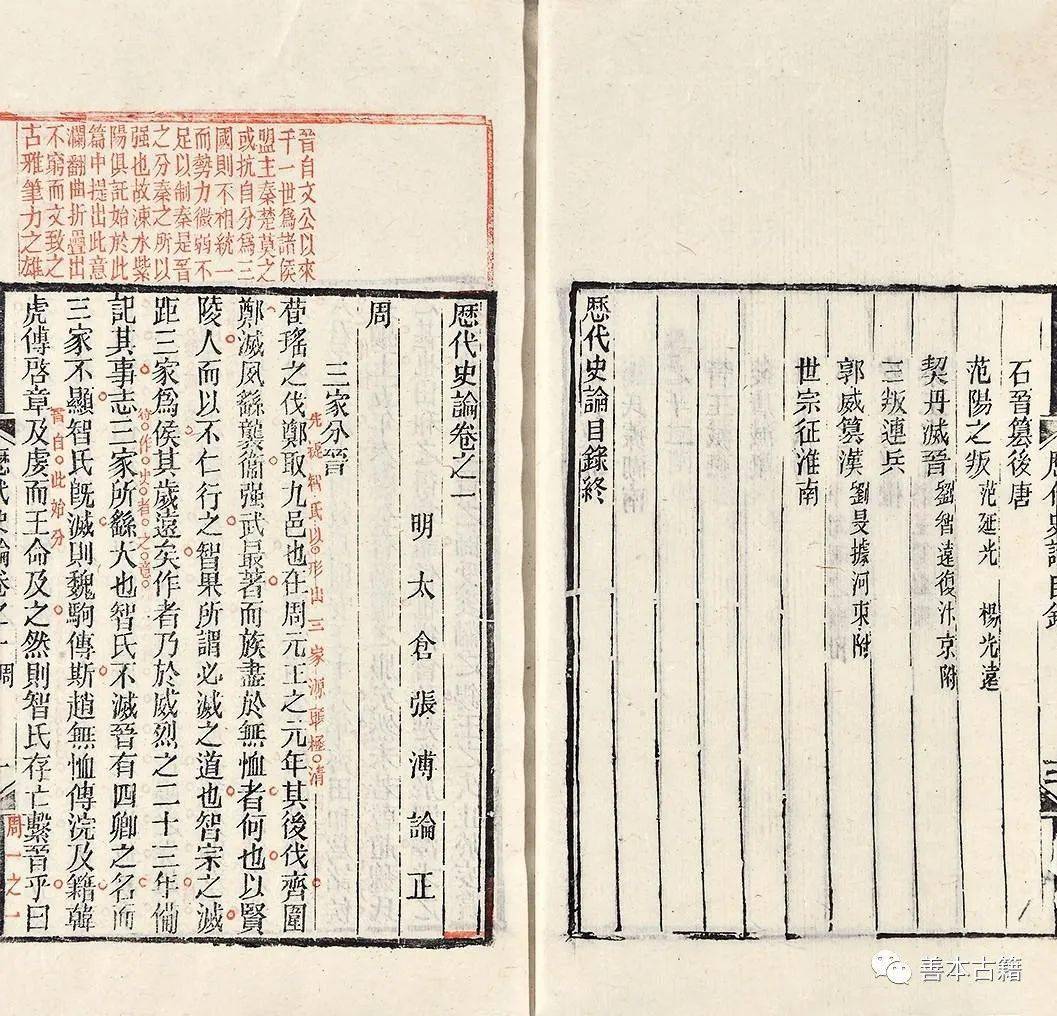 石晉篡後唐
范陽之叛 范延光 楊光遠
契丹滅晉 劉智遠復汴京附
三叛連兵
郭威篡漢 劉旻據河東附
世宗征淮南
歷代史論目錄終
歷代史論目錄
晉自文公以來
千一世爲諸侯
盟主秦楚莫之
或抗自分爲三
國則不相統一
而勢力微弱不
足以制秦是晉
之分秦之所以
强也故涑水紫
陽俱託始於此
篇中提出此意
瀾翻曲折疊出
不窮而文致之
古雅筆力之雄
歷代史論卷之一
明太倉張溥論正
周
三家分晉
先從智氏以形出三家源頭極清
荀瑤之伐鄭取九邑也在周元王之元年其後伐齊圍
鄭滅夙繇襲衞强武最著而族盡於無恤者何也以賢
陵人而以不仁行之智果所謂必滅之道也智宗之滅
距三家爲侯其歲遠矣作者乃於威烈之二十三年備
作史者之意
記其事志三家所繇大也智氏不滅晉有四卿之名而
三家不顯智氏旣滅則魏駒傳斯趙無恤傳浣及籍韓
晉自此始分
虎傅啓章及虔而王命及之然則智氏存亡繫晉乎曰
歷代史論卷之一 周 一
周一之一
善本古籍